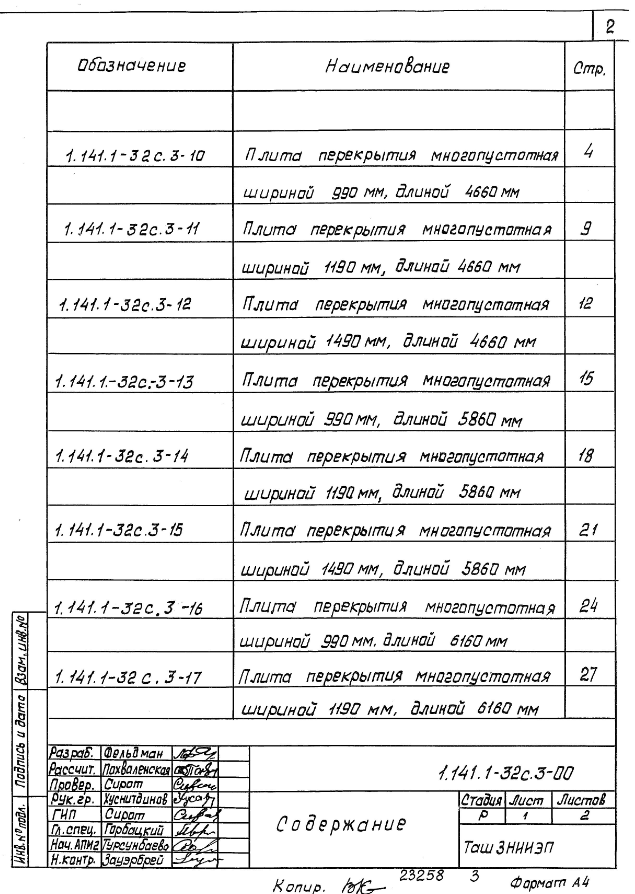 2
Обозначение Наименование Стр.
1.141.1-32с.3-10 Плита перекрытия многопустотная 4
шириной 990 мм, длиной 4660 мм
1.141.1-32с.3-11 Плита перекрытия многопустотная 9
шириной 1190 мм, длиной 4660 мм
1.141.1-32с.3-12 Плита перекрытия многопустотная 12
шириной 1490 мм, длиной 4660 мм
1.141.1-32с.-3-13 Плита перекрытия многопустотная 15
шириной 990 мм, длиной 5860 мм
1.141.1-32с.3-14 Плита перекрытия многопустотная 18
шириной 1190 мм, длиной 5860 мм
1.141.1-32с.3-15 Плита перекрытия многопустотная 21
шириной 1490 мм, длиной 5860 мм
1.141.1-32с.3-16 Плита перекрытия многопустотная 24
шириной 990 мм. длиной 6160 мм
1.141.1-32с.3-17 Плита перекрытия многопустотная 27
шириной 1190 мм, длиной 6160 мм
Взам. инв.№
Подпись и дата
Инв.№ подл.
Разраб. Фельдман
Рассчит. Похваленская
Провер. Сирот
Рук.гр. Хуснитдинов
ГИП Сирот
Гл.спец. Горбацкий
Нач.АПМ2 Турсунбаево
Н.контр. Зауэрбрей
1.141.1-32с.3-00
Содержание
Стадия Лист Листов
Р 1 2
Таш ЗНИИЭП
Копир. 23258 3 Формат А4